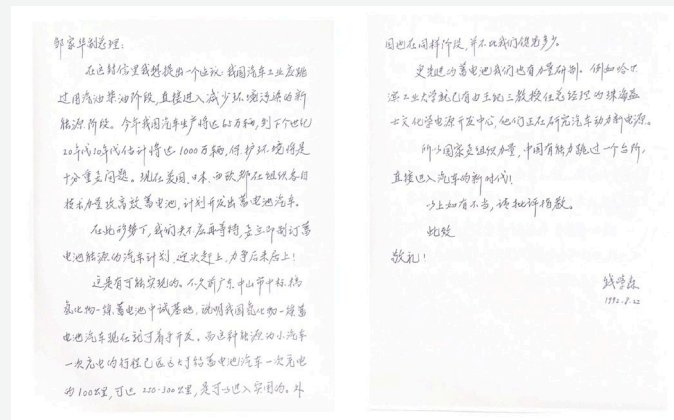 邹家华副总理：
在这封信里我想提出一个建议：我国汽车工业应跳
过用汽油柴油阶段，直接进入减少环境污染的新
能源阶段。今年我国汽车生产将达65万辆，到下个世纪
20年代30年代估计将达1000万辆，保护环境将是
十分重要问题。现在美国、日本、西欧都在组织各自
技术力量攻高效蓄电池，计划开发出蓄电池汽车。
在此形势下，我们决不应再等待，要立即制订蓄
电池能源的汽车计划，迎头赶上，力争后来居上！
这是有可能实现的。不久前广东中山市中标，搞
氢化物-镍蓄电池中试基地，说明我国氢化物-镍蓄
电池汽车现在就可着手开发。而这种能源的小汽车
一次充电的行程已远远大于铅蓄电池汽车一次充电
的100公里，可达250-300公里，是可以进入实用的。外
国也在同样阶段，并不比我们领先多少。
更先进的蓄电池我们也有力量研制。例如哈尔
滨工业大学就已有由王纪三教授任总经理的珠海益
士文化学电源开发中心，他们正在研究汽车动力新电源。
所以国家要组织力量，中国有能力跳过一个台阶，
直接进入汽车的新时代！
以上如有不当，请批评指教。
此致
敬礼！
钱学森
1992.8.22